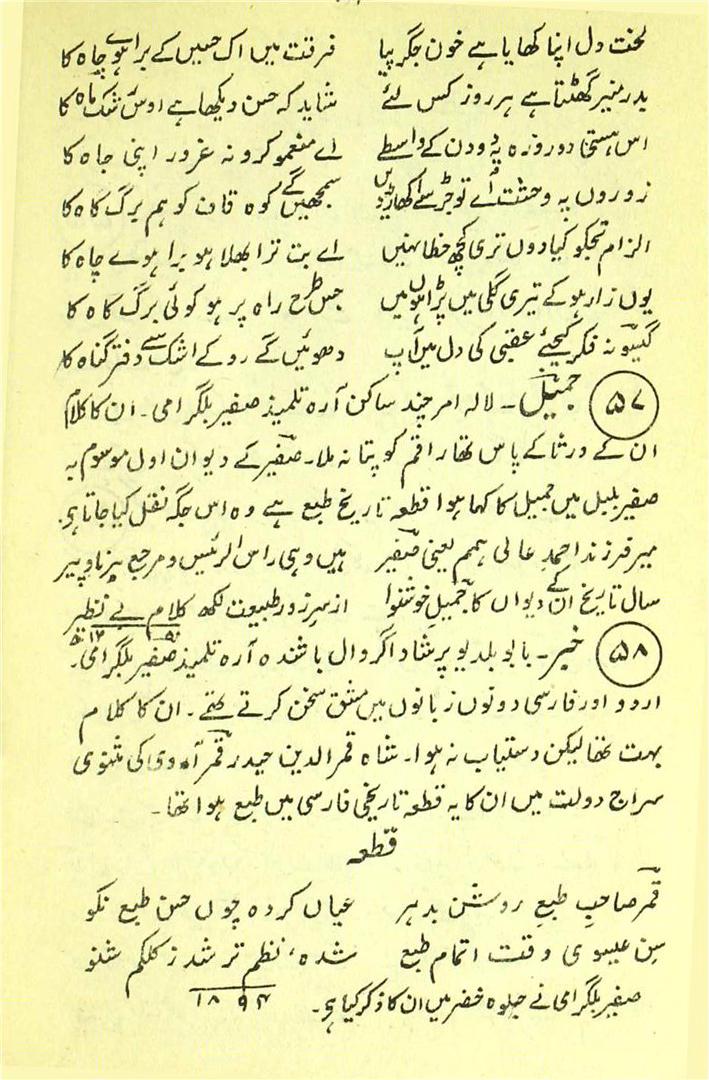 لخت دل اپنا کھایا ہے خون جگر پیا فرقت میں اک حسیں کے برا ہوے چاہ کا
بدر منیر گھٹتا ہے ہر روز کس لئے شاید کہ حسن دیکھا ہے اوس رشک ماہ کا
اس ہستیٔ دو روزہ پہ دو دن کے واسطے اے منعمو کرو نہ غرور اپنی جاہ کا
زوروں پہ وحشت آے تو جڑ سے اکھاڑ دیں سمجھیں گے کوہ قاف کو ہم برگ کاہ کا
الزام تجکو کیا دوں تری کچھ خطا نہیں اے بت ترا بھلا ہو برا ہوے چاہ کا
یوں زار ہو کے تیری گلی میں پڑا ہوں میں جس طرح راہ پر ہو کوئی برگ کاہ کا
گیسو نہ فکر کیجئے عقبیٰ کی دل میں آپ دھوئیں گے رو کے اشک سے دفتر گناہ کا
۵۷ جمیل۔ لالہ امر چند ساکن آرہ تلمیذ صفیر بلگرامی۔ ان کا کلام
ان کے ورثا کے پاس تھا راقم کو پتا نہ ملا۔ صفیر کے دیوان اول موسوم بہ
صفیر بلبل میں جمیل کا کہا ہوا قطعہ تاریخ طبع ہے وہ اس جگہ نقل کیا جاتا ہی۔
میر فرزند احمد عالی ہمم یعنی صفیر ہیں وہی راس الرئیس و مرجع برنا و پیر
سال تاریخ ان کے دیواں کا جمیل خوشنوا از سر زور طبیعت لکھ کلام بے نظیر
۵۸ خبیر۔ بابو بلدیو پرشاد اگروال باشندہ آرہ تلمیذ صفیر بلگرامی۔
اردو اور فارسی دونوں زبانوں میں مشق سخن کرتے تھے۔ ان کا کلام
بہت تھا لیکن دستیاب نہ ہوا۔ شاہ قمر الدین حیدر قمر آروی کی مثنوی
سراج دولت میں ان کا یہ قطعہ تاریخی فارسی میں طبع ہوا تھا۔
قطعہ
قمر صاحبِ طبعِ روشن بدہر عیاں کردہ چوں حسن طبع نکو
سن عیسوی وقت اتمام طبع شدہ، نظم تر شد ز کلکم شنو
۱۸۹۴
صفیر بلگرامی نے جلوہ خضر میں ان کا ذکر کیا ہی۔